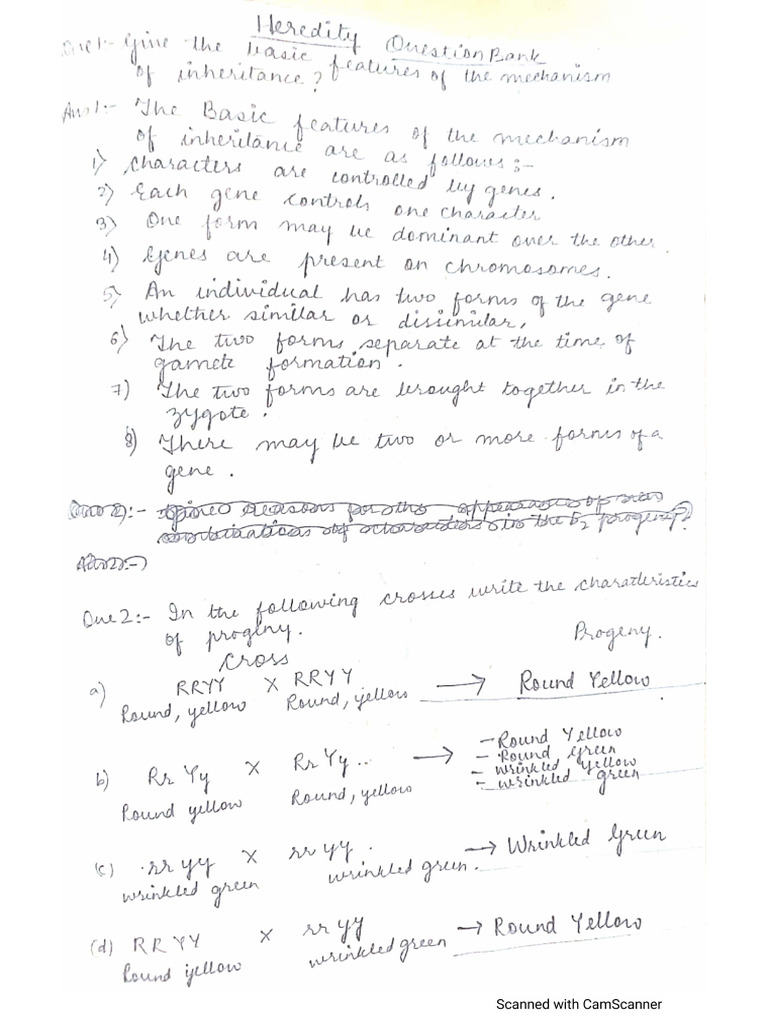 Heredity Question Bank
Que1:- Give the basic features of the mechanism
of inheritance?
Ans1:- The Basic features of the mechanism
of inheritance are as follows :-
1) Characters are controlled by genes.
2) Each gene controls one character
3) One form may be dominant over the other.
4) Genes are present on chromosomes.
5) An individual has two forms of the gene
whether similar or dissimilar.
6) The two forms separate at the time of
gamete formation.
7) The two forms are brought together in the
zygote.
8) There may be two or more forms of a
gene.
Que 2:- reasons for the appearance of new
combinations of characters in the F2 progeny?
Ans2:-
Que 2:- In the following crosses write the charatteristics
of progeny.
Cross Progeny.
a) RRYY X RRYY → Round Yellow
Round, yellow Round, yellow
b) RrYy X RrYy .. → - Round Yellow
- Round Green
- Wrinkled Yellow
- wrinkled green
Round yellow Round, yellow
(c) rryy X rryy. → Wrinkled Green
wrinkled green wrinkled green.
(d) RRYY X rryy → Round Yellow
Round yellow wrinkled green
Scanned with CamScanner